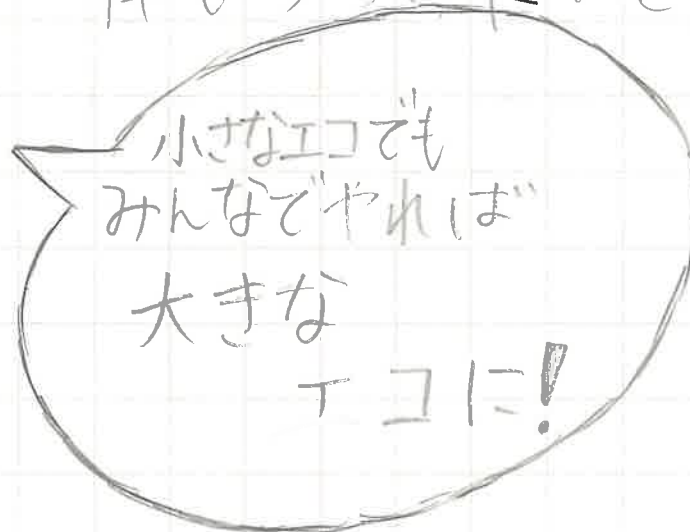 小さなエコでも
みんなでやれば
大きな
エコに!